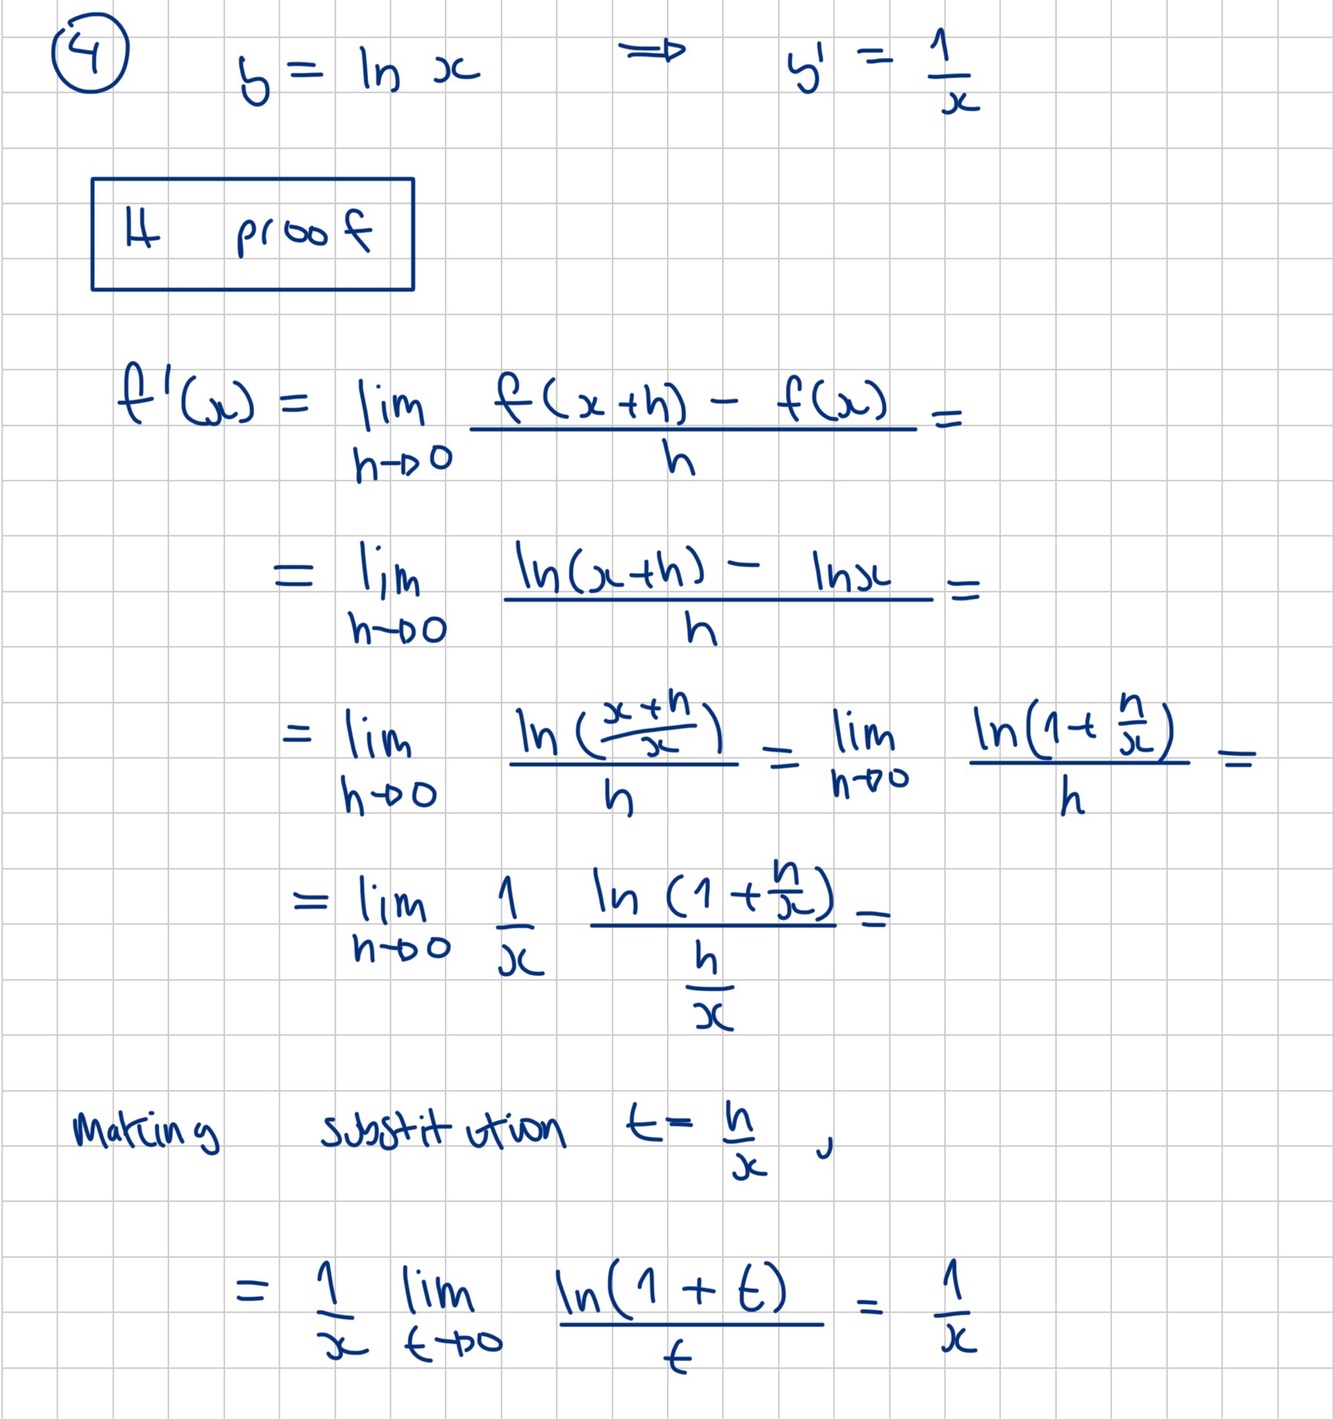 ④ y = ln x ⇒ y' = 1/x
H proof
f'(x) = lim h→0 (f(x+h) - f(x))/h =
= lim h→0 (ln(x+h) - lnx)/h =
= lim h→0 ln((x+h)/x)/h = lim h→0 ln(1+h/x)/h =
= lim h→0 1/x ln(1+h/x)/(h/x) =
Making substitution t = h/x ,
= 1/x lim t→0 ln(1+t)/t = 1/x